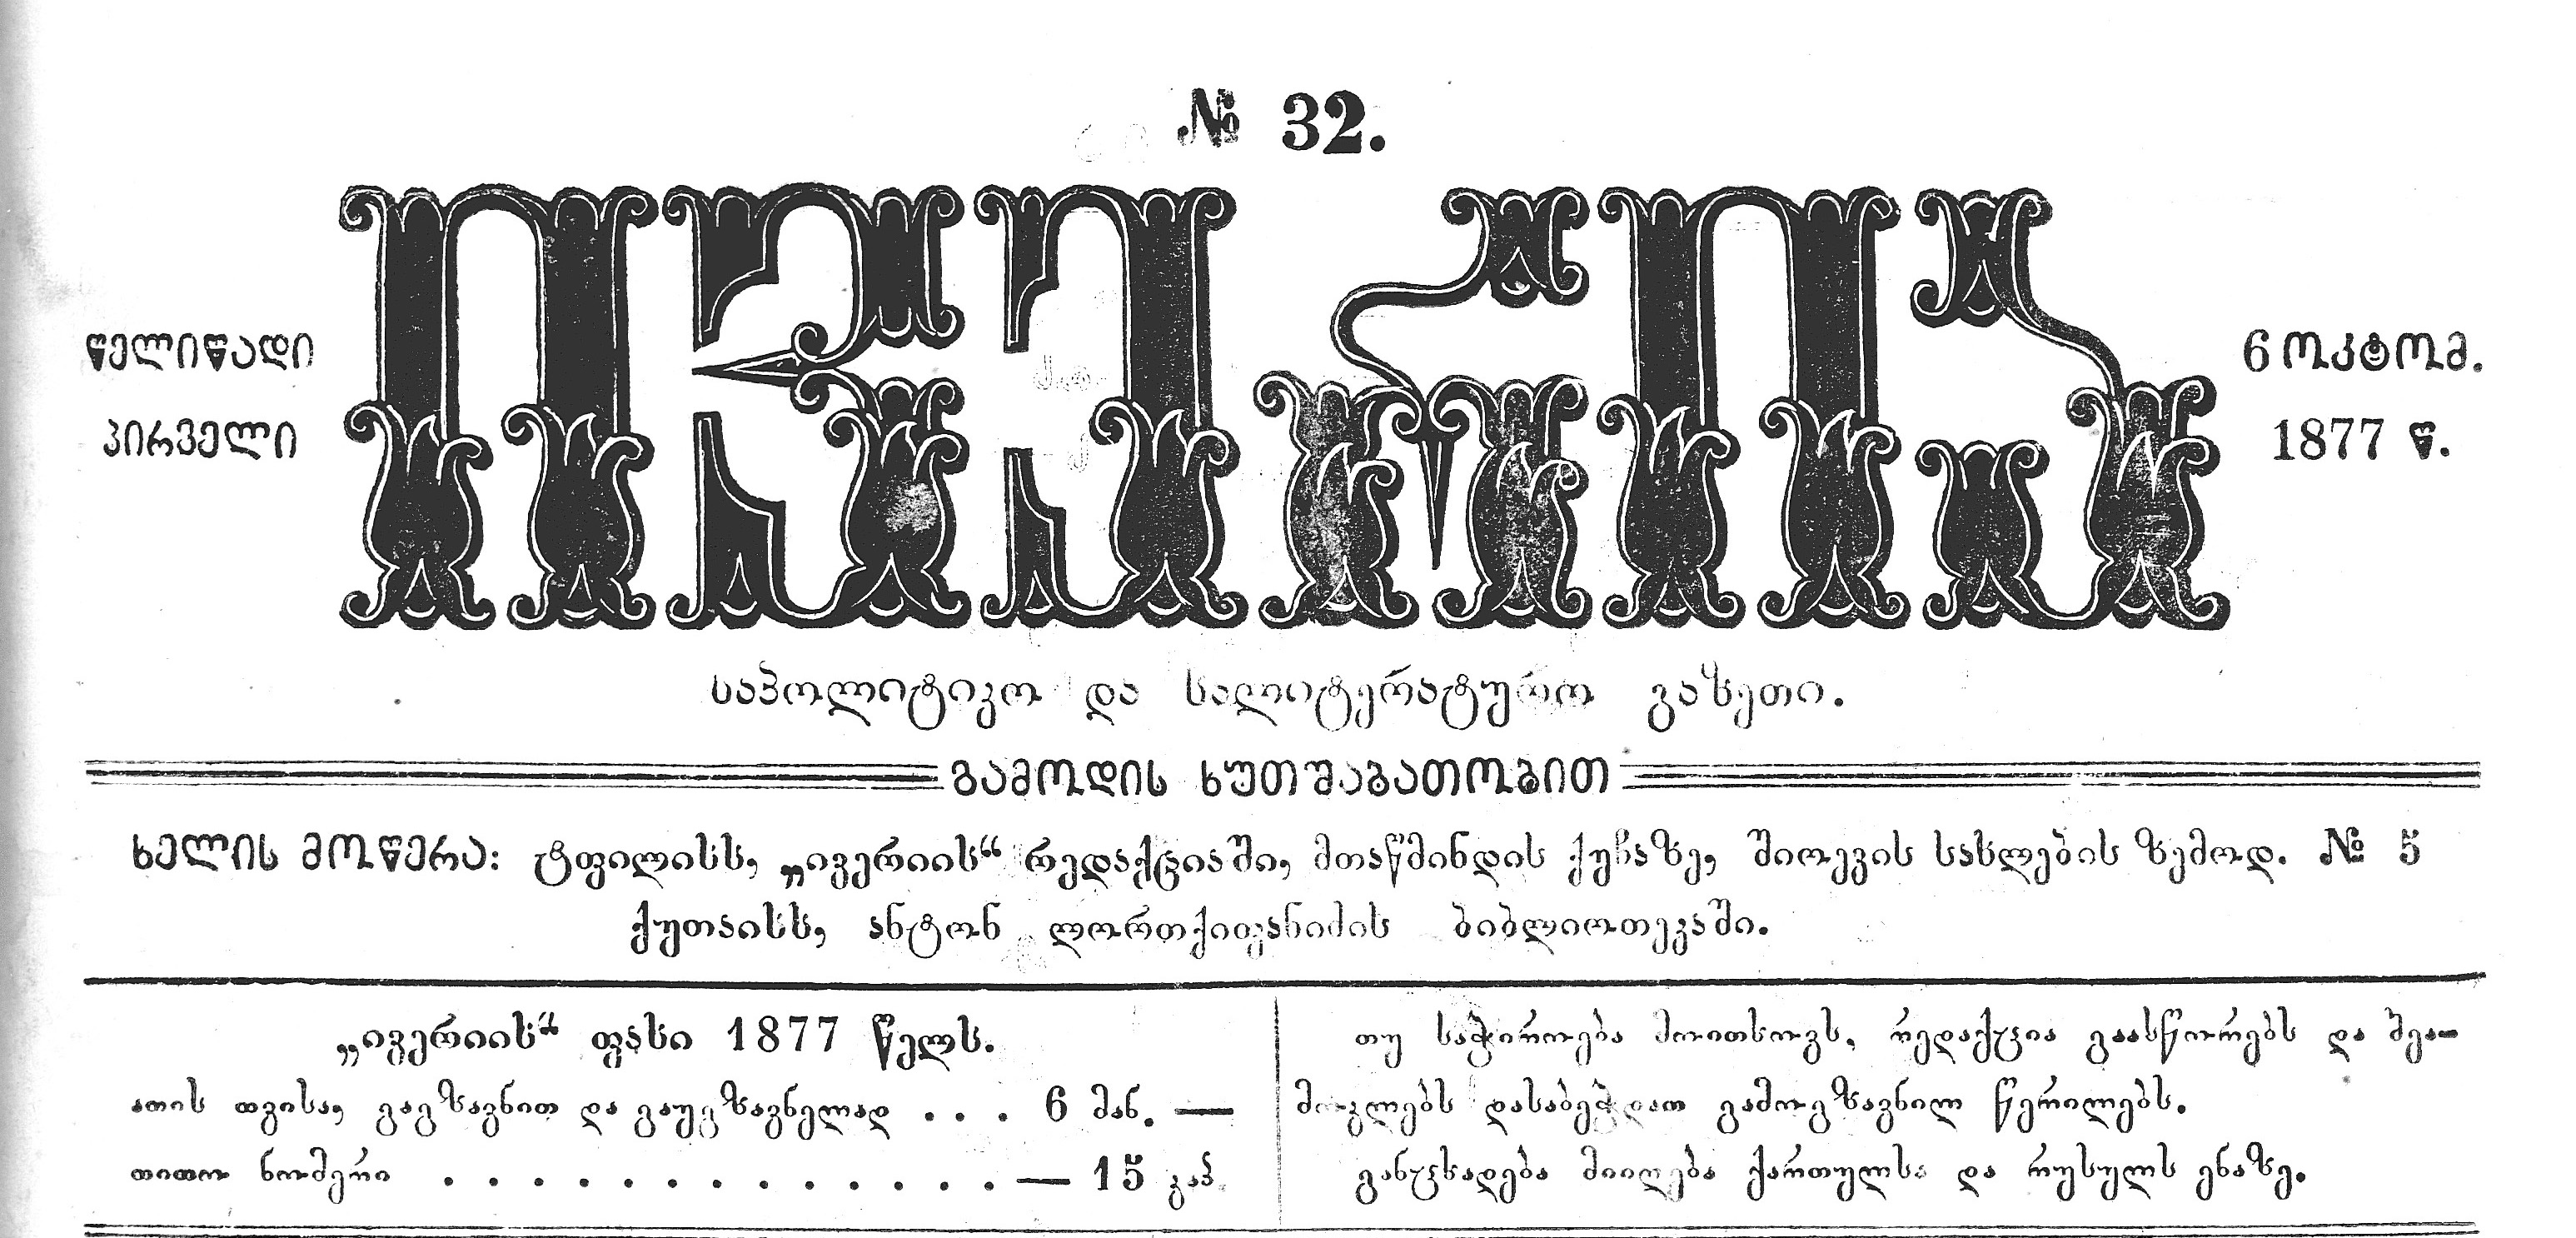 № 32.
ივერია
წელიწადი
პირველი
6 ოკტომ.
1877 წ.
საპოლიტიკო და სალიტერატურო გაზეთი.
გამოდის ხუთშაბათობით
ხელის მოწერა: ტფილისს, „ივერიის“ რედაქციაში, მთაწმინდის ქუჩაზე, შიოევის სახლების ზემოდ. № 5
ქუთაისს, ანტონ ლორთქიფანიძის ბიბლიოთეკაში.
„ივერიის“ ფასი 1877 წელს.
ათის თვისა, გაგზავნით და გაუგზავნელად . . . 6 მან. —
თითო ნომერი . . . . . . . . . . . . . — 15 კაპ.
თუ საჭიროება მოითხოვს, რედაქცია გაასწორებს და შეა-
მოკლებს დასაბეჭდათ გამოგზავნილ წერილებს.
განცხადება მიიღება ქართულსა და რუსულს ენაზე.